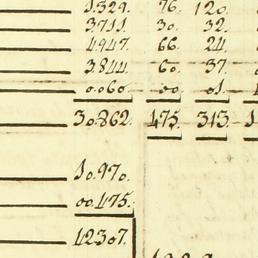 1.329. 76. 120.
3.711. 30. 32.
4.947. 66. 24.
3.844. 60. 37.
0.060. 00. 01.
30.862. 475. 313.
10.970.
00.475.
12307.